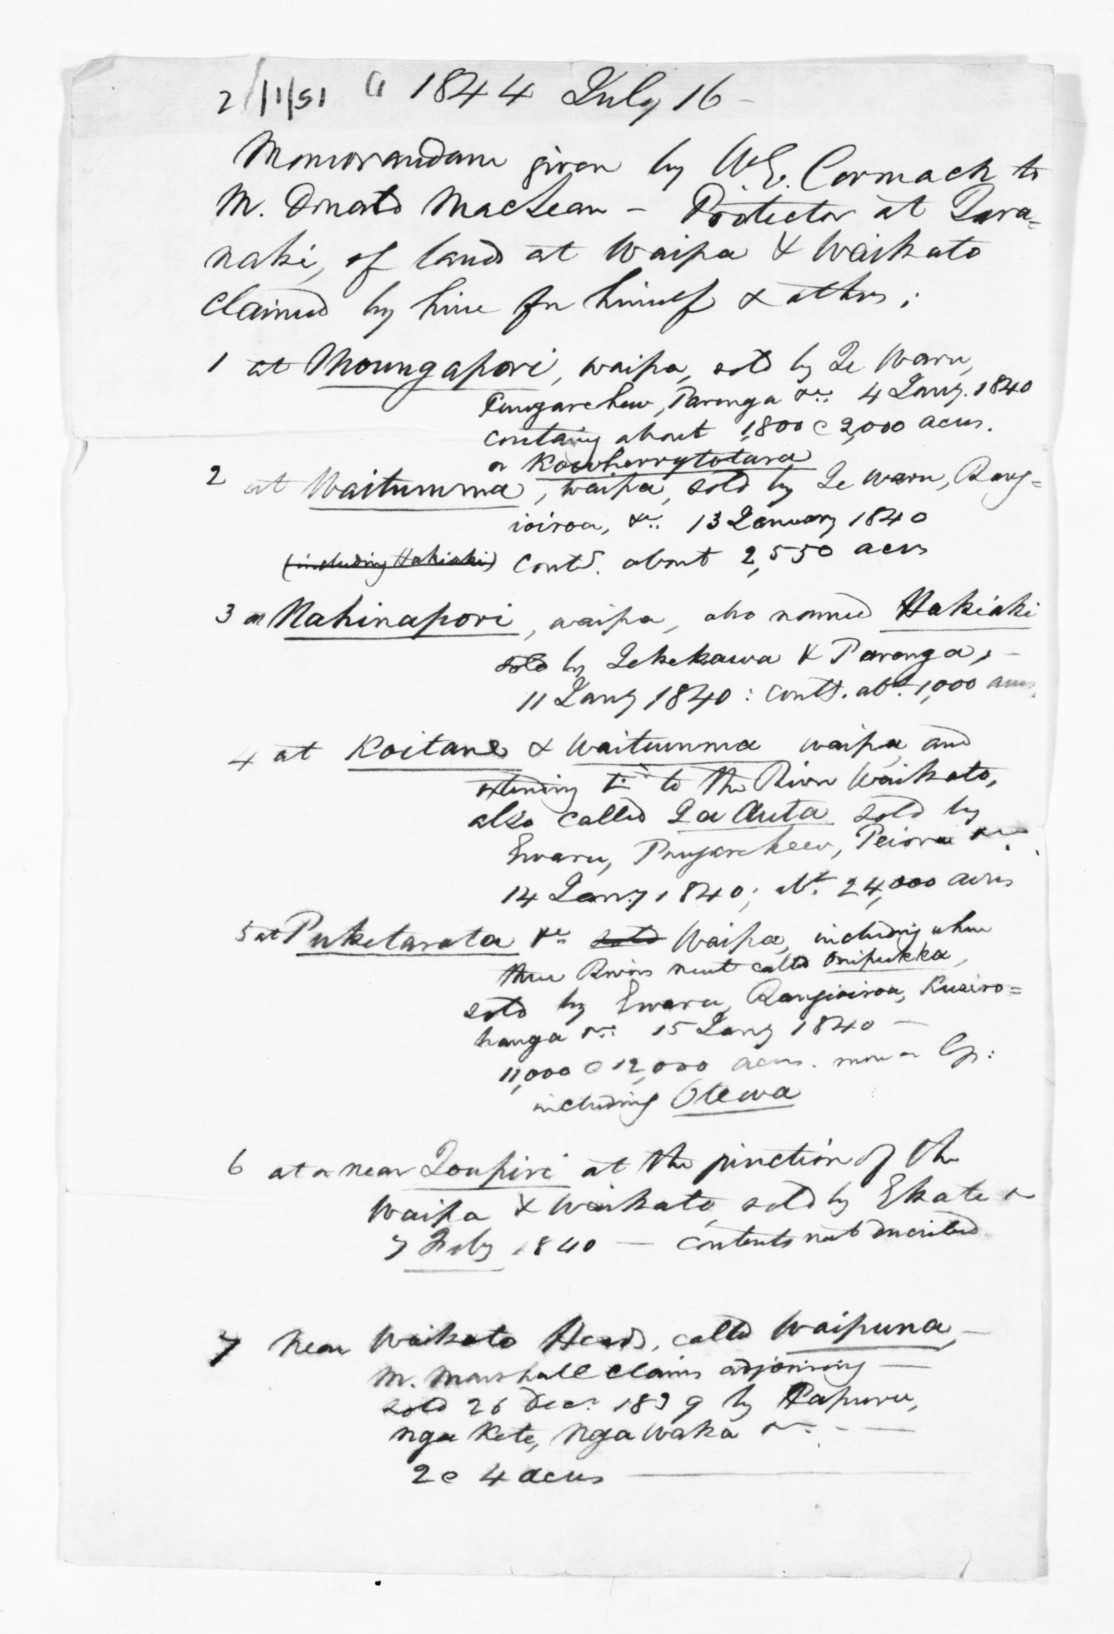 2/11/51 a 1844 July 16 -
Memorandum given by W.E. Cormack to
M. Donald MacLean - Protector at Tara=
naki, of lands at Waipa & Waikato
claimed by him for himself & others;
1 at Moungapori, waipa, sold by Te Waru,
Parenga &c. 4 Jany. 1840
containg about 1,800 @ 2,000 acres.
or Kowherrytotara
2 at Waitumma, waipa, sold by Te Waru, Rang=
ioiroa, &c. 13 January 1840
(including Hakiaki) Contg. about 2,550 acres
3 at Nahinapori, waipa, also named Hakiaki
sold by Tekekawa & Parenga, -
11 Jany 1840: contg. abt. 1,000 acres.
4 at Koitane & Waitumma waipa and
extending to the River Waikato,
also called Ta Auta sold by
Ewaru, Peiora &c.
14 Jany 1840; abt. 24,000 acres
5 at Puketarata &c sold Waipa, including where
three Rivers meet called Onipukka,
sold by Ewaru, Rangioiroa, Kuairo=
hanga &c. 15 Jany 1840 -
11,000 @ 12,000 acres. more or less:
including Otewa
6 at or near Toupiri at the junction of the
Waipa & Waikato, sold by Ekate &
7 July 1840 - contents not described
7 Near Waikato Heads, called Waipuna, -
M. Marshall claims adjoining -
sold 26 Decr. 1839 by Papuru,
nga Kete, Nga Waka &c. - -
2 @ 4 acres